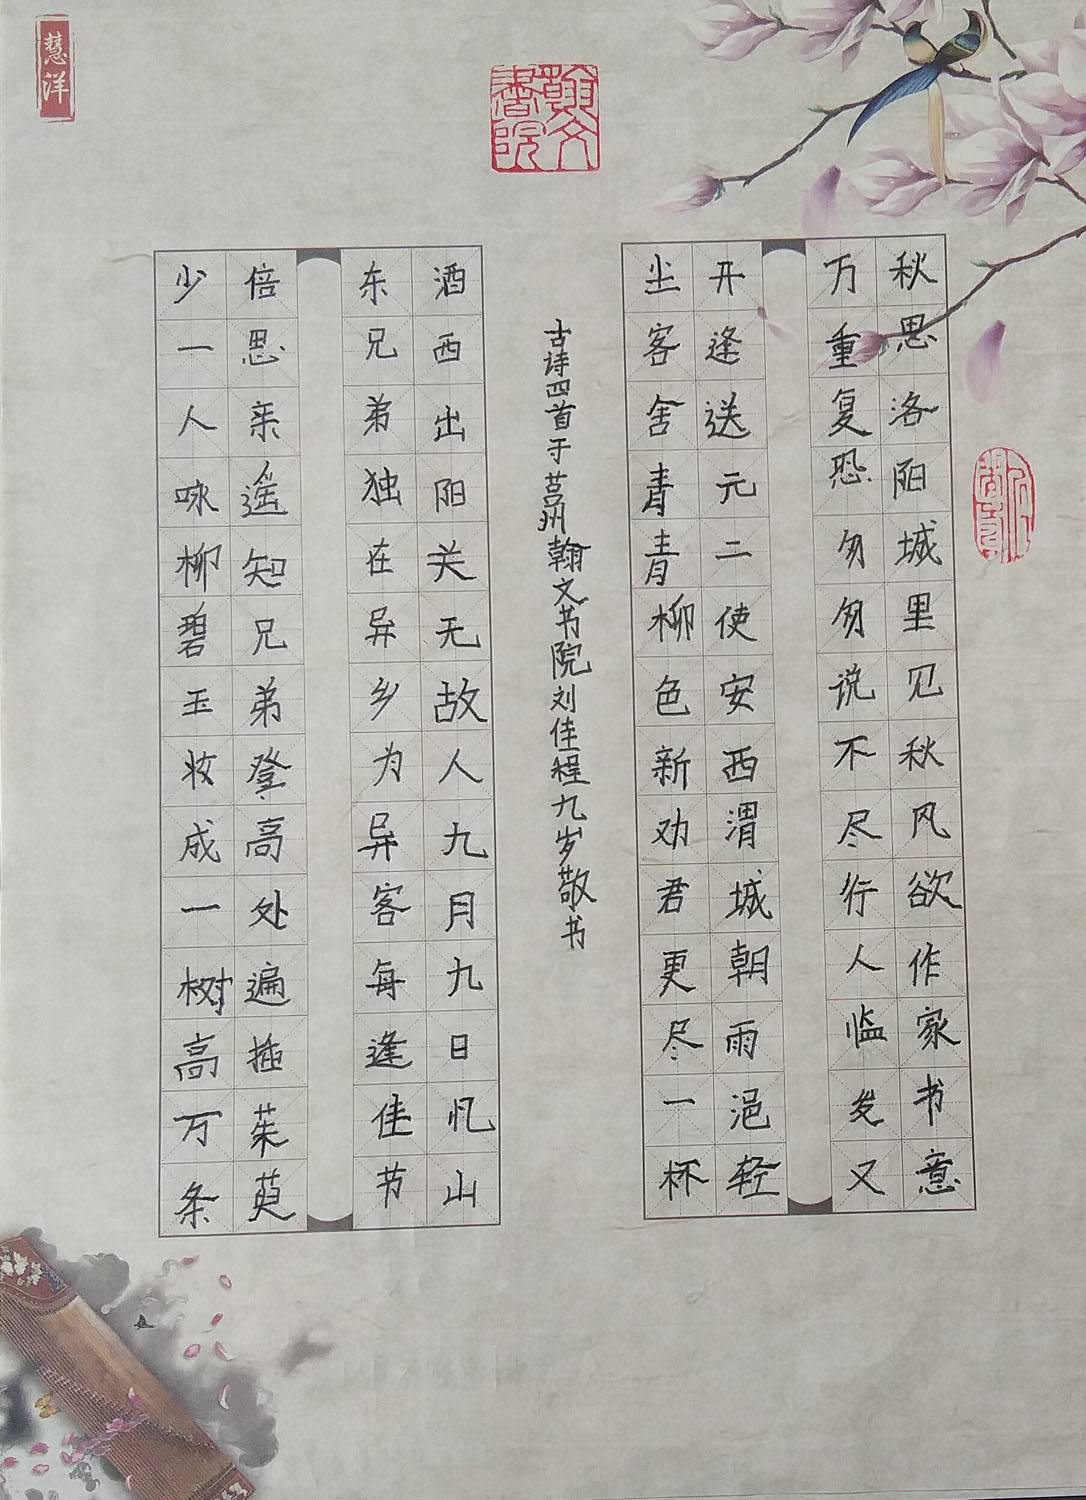 慧洋
翰文书院
秋思洛阳城里见秋风欲作家书意
万重复恐匆匆说不尽行人临发又
开逢送元二使安西渭城朝雨浥轻
尘客舍青青柳色新劝君更尽一杯
古诗四首于莒州翰文书院刘佳程九岁敬书
酒西出阳关无故人九月九日忆山
东兄弟独在异乡为异客每逢佳节
倍思亲遥知兄弟登高处遍插茱萸
少一人咏柳碧玉妆成一树高万条